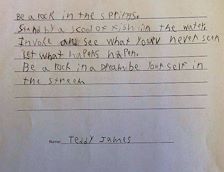 Be a rock in the springs.
Stand by a scool of fish in the water.
Invole and see what youv never seen
Let what happens happen.
Be a rock in a stream be your self in
the stream
Name: Teddy James